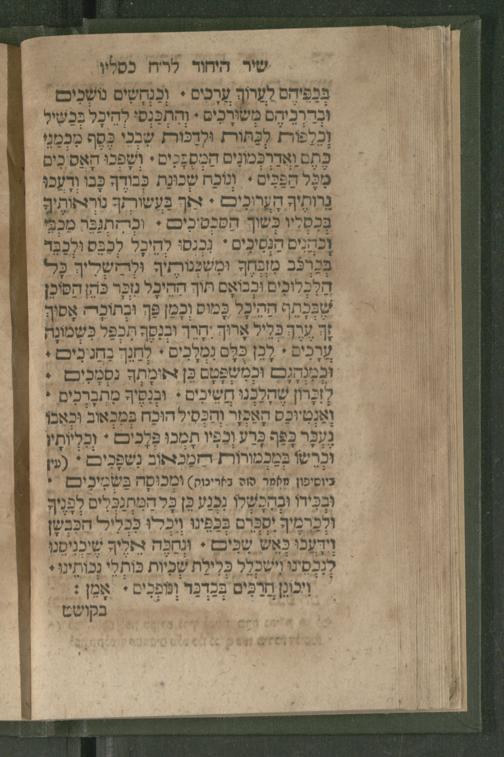 שיר היחוד לר״ח כסליו
בְּכַפֵּיהֶם לַעֲרוֹךְ עֲרָכִים · וְכַנְּחָשִׁים נוֹשְׁכִים
וּבְדַרְכֵיהֶם מְשׂוֹרָכִים · וְהִתְכַּנְּסוּ לְהֵיכָל בְּכַשִּׁיל
וְכֵלַפּוֹת לְכַתּוֹת וּלְדַכּוֹת שִׁבְבֵי כֶּסֶף מִכְמַנֵּי
כֶתֶם וַאֲדַרְכְּמוֹנִים הַמְסֻבָּכִים · וְשָׁפְכוּ הָאֲסֻכִים
מִכָּל הַפַּכִּים · וְנוֹכַח שְׁכוּנַת כְּבוֹדְךָ כָּבוּ וְדָעֲכוּ
נֵרוֹתֶיךָ הָעֲרוּכִים · אַךְ בַּעֲשׂוֹתְךָ נוֹרְאוֹתֶיךָ
בְּכִסְלֵיו כְּשׁוֹךְ הַסִּבְסוּכִים · וּבְהִתְגַּבֵּר מַכַבֵּי
וְכֹהֲנִים הַנְּסִיכִים · נִכְנְסוּ לְהֵיכָל לְכַבֵּס וּלְכַבֵּד
כַּרְכֹּב מִזְבַּחֲךָ וּמִשְׁכְּנוֹתֶיךָ וּלְהַשְׁלִיךְ כָּל
הַלִּכְלוּכִים וּבְבוֹאָם תּוֹךְ הַהֵיכָל נִזְכַּר כֹּהֵן הַסּוֹכֵן
שֶׁבִּכְתַף הַהֵיכָל כָּמוּס וְכָמַן פַּךְ וּבְתוֹכָהּ אָסוּךְ
זָךְ עֶרֶךְ כְּלֵיל אָרוּךְ יַחְדֵּךְ וּבְנֵסֶךְ תִּכְפַּל כִּשְׁמוֹנָה
עֲרָכִים · לָכֵן כֻּלָּם נִמְלָכִים · לְחַנֵּךְ בַּחֲנוּכִים ·
וּכְמִנְהָגָם וּכְמִשְׁפָּטָם כֵּן אוּמָתְךָ נִסְמָכִים ·
לְזִכְרוֹן שֶׁהָלַכְנוּ חֲשֵׁיכִים · וּבְנִסֶּיךָ מִתְבָּרְכִים ·
וְאַנְטִיוּכַס הָאַכְזָר וְהַכְּסִיל הוּכַח בְּמַכְאוֹב וּכְאֵבוֹ
נֶעְכַּר כַּפָּף כָּרַע וְכַפָּיו תָּמְכוּ פְּלָכִים · וְכִלְיוֹתָיו
וּכְרֵשׂוֹ בְּמַכְמוֹרוֹת הַמַּכְאוֹב נִשְׁפָּכִים · (עיין
ביוסיפון מאמר הזה באריכות) וּמְכוּסֶה בִּשְׂמִיכִים ·
וּבְכִידוֹ וּבְהִכָּשְׁלוֹ נִכְנַע כֵּן כָּל הַמִּתְנַכְּלִים לְפָנֶיךָ
וּלְכַרְמֶיךָ יִסָּכְרֵם בְּכַפֵּינוּ וְיִכְלוּ כִּכְלִיל הַכִּבְשָׁן
וְיִדָּעֲכוּ כְּאֵשׁ שִׂכִּים · וּנְחַכֶּה אֵלֶיךָ שֶׁיְּכַנִּיסֵנוּ
לִנְכָסֵינוּ וִישַׁכְלֵל כְּלִילַת שְׂכִיּוֹת כּוֹתְלֵי נְכוֹתֵינוּ ·
וִיכוֹנֵן הֲרָכִים בְּכַדְכֹּד וְנוֹפְכִים · אָמֵן :
בקושט